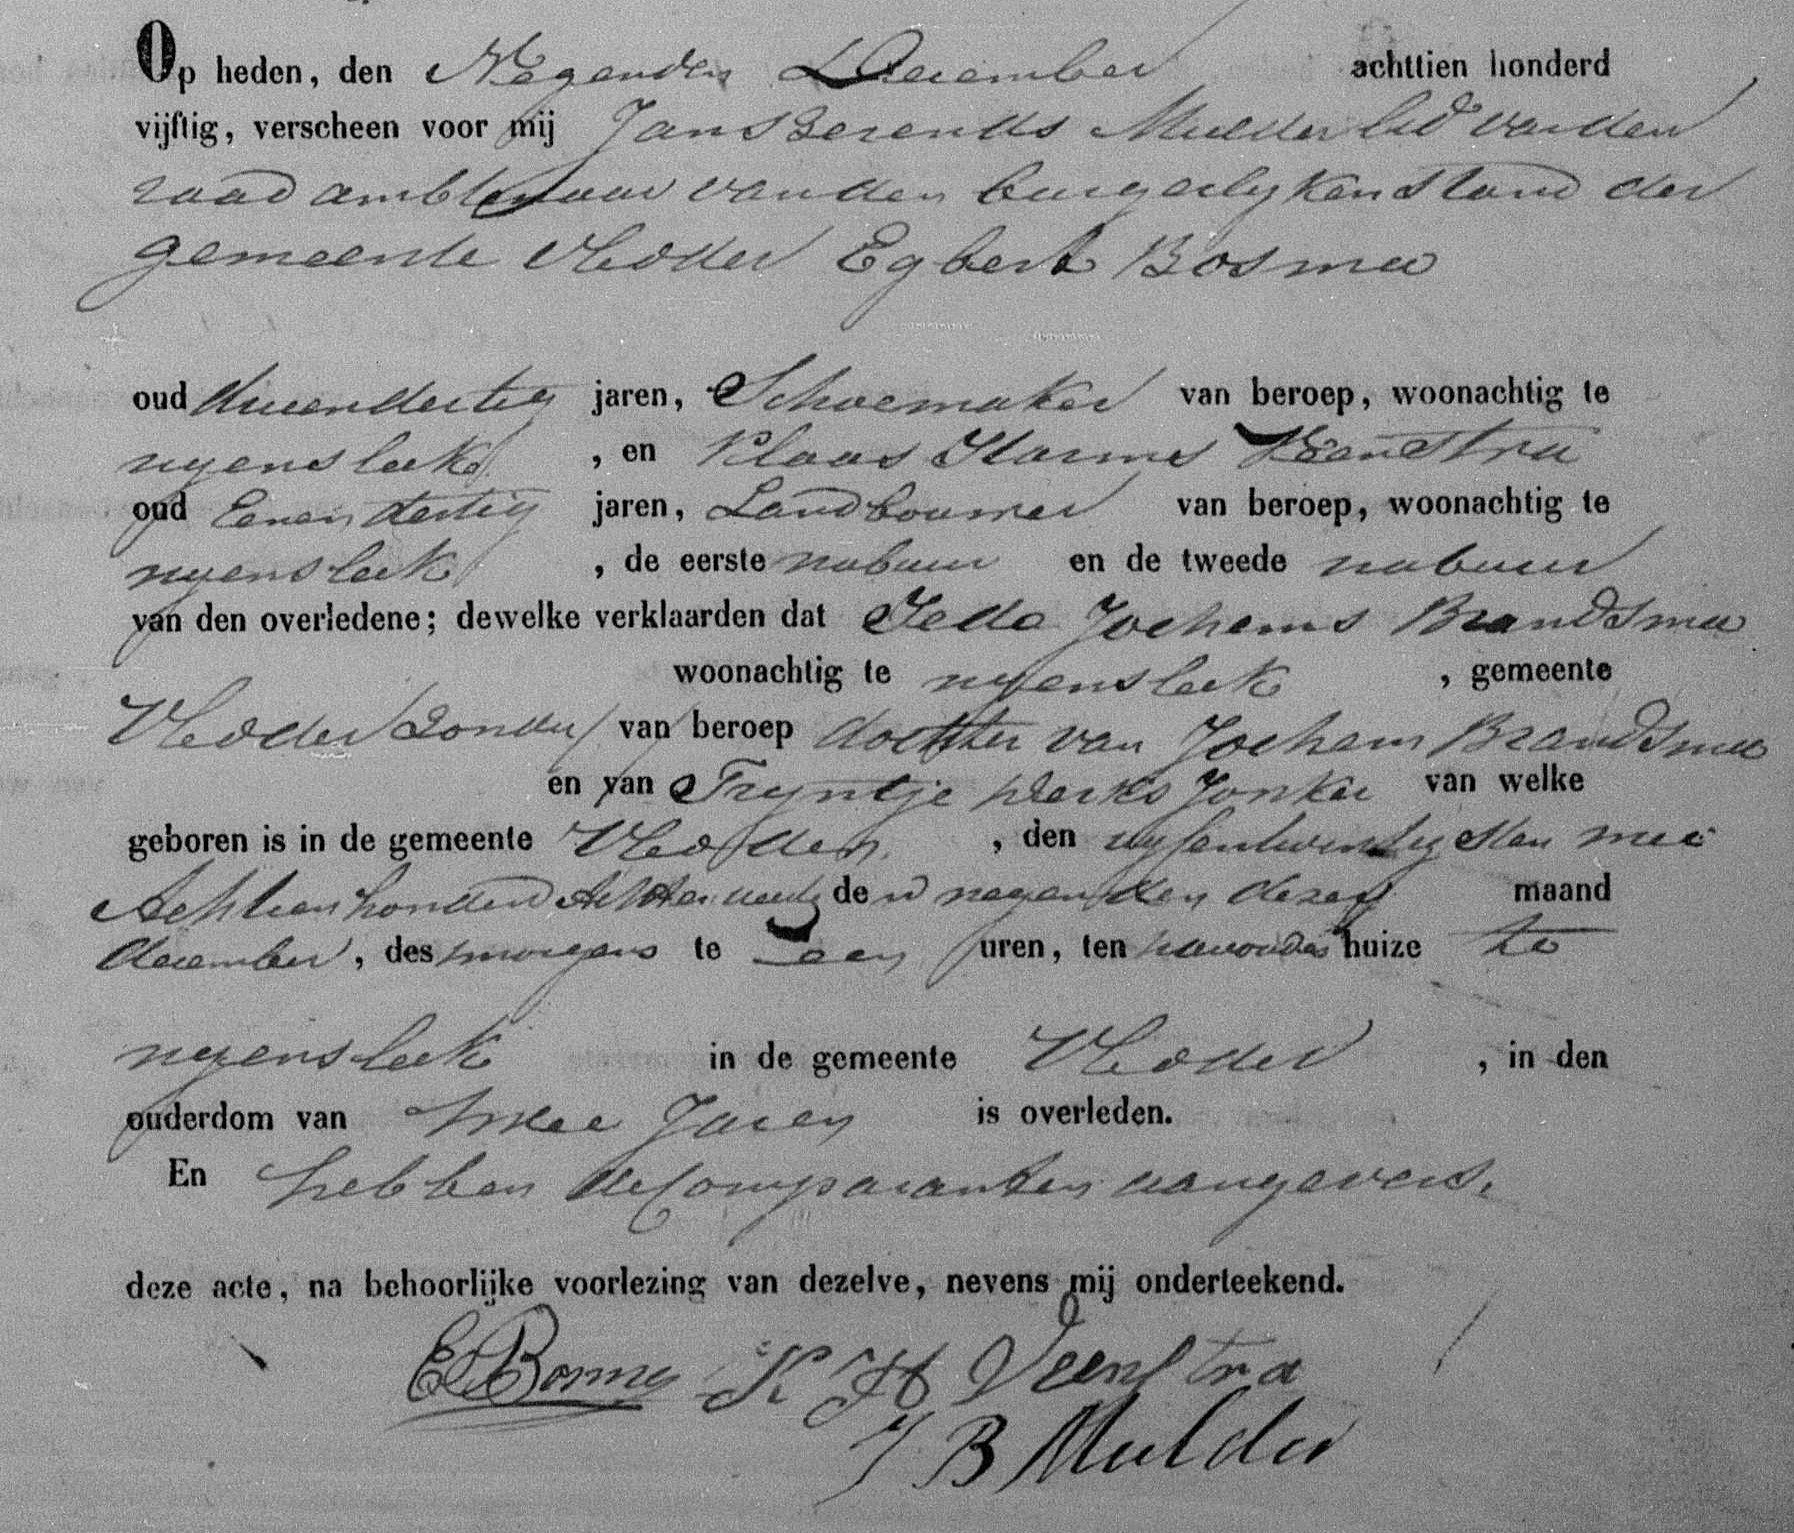 Op heden, den Negenden December achttien honderd
vijftig, verscheen voor mij Jan Berends Mulder lid van den
raad ambtenaar van den burgerlyken stand der
gemeente Vledder Egbert Bosma
oud drieendertig jaren, Schoemaker van beroep, woonachtig te
nyensleek , en Klaas Harms Veenstra
oud Eenendertig jaren, Landbouwer van beroep, woonachtig te
nyensleek , de eerste nabuur en de tweede nabuur
van den overledene; dewelke verklaarden dat Jochems Brandsma
woonachtig te nyensleek , gemeente
Vledder zonder van beroep dochter van Jochem Brandsma
en van Tryntje Derks Jonker van welke
geboren is in de gemeente Vledder , den vyfentwintigsten mei
Achtienhonderd den negenden dezer maand
december, des morgens te een uren, ten huize te
nyensleek in de gemeente Vledder , in den
ouderdom van twee Jaren is overleden.
En hebben de Comparanten aangevers.
deze acte, na behoorlijke voorlezing van dezelve, nevens mij onderteekend.
E Bosma K H Veenstra
J B Mulder